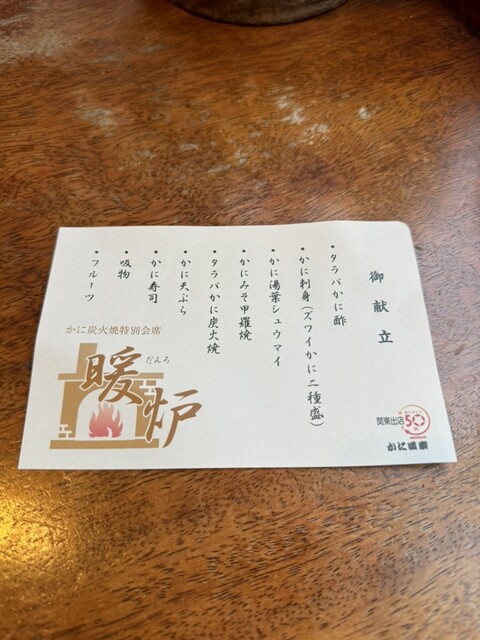 御献立
・タラバかに酢
・かに刺身(ズワイかに二種盛)
・かに湯葉シュウマイ
・かにみそ甲羅焼
・タラバかに炭火焼
・かに天ぷら
・かに寿司
・吸物
・フルーツ
かに炭火焼特別会席
だんろ
暖炉
関東出店
50
かに道楽